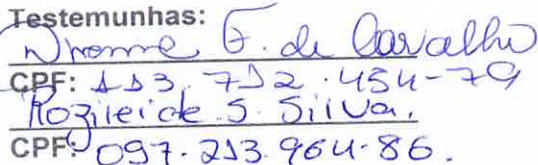 Testemunhas:
G. de Carvalho
CPF: 113.712.454-79
Rozileide S. Silva.
CPF: 097.213.964-86.